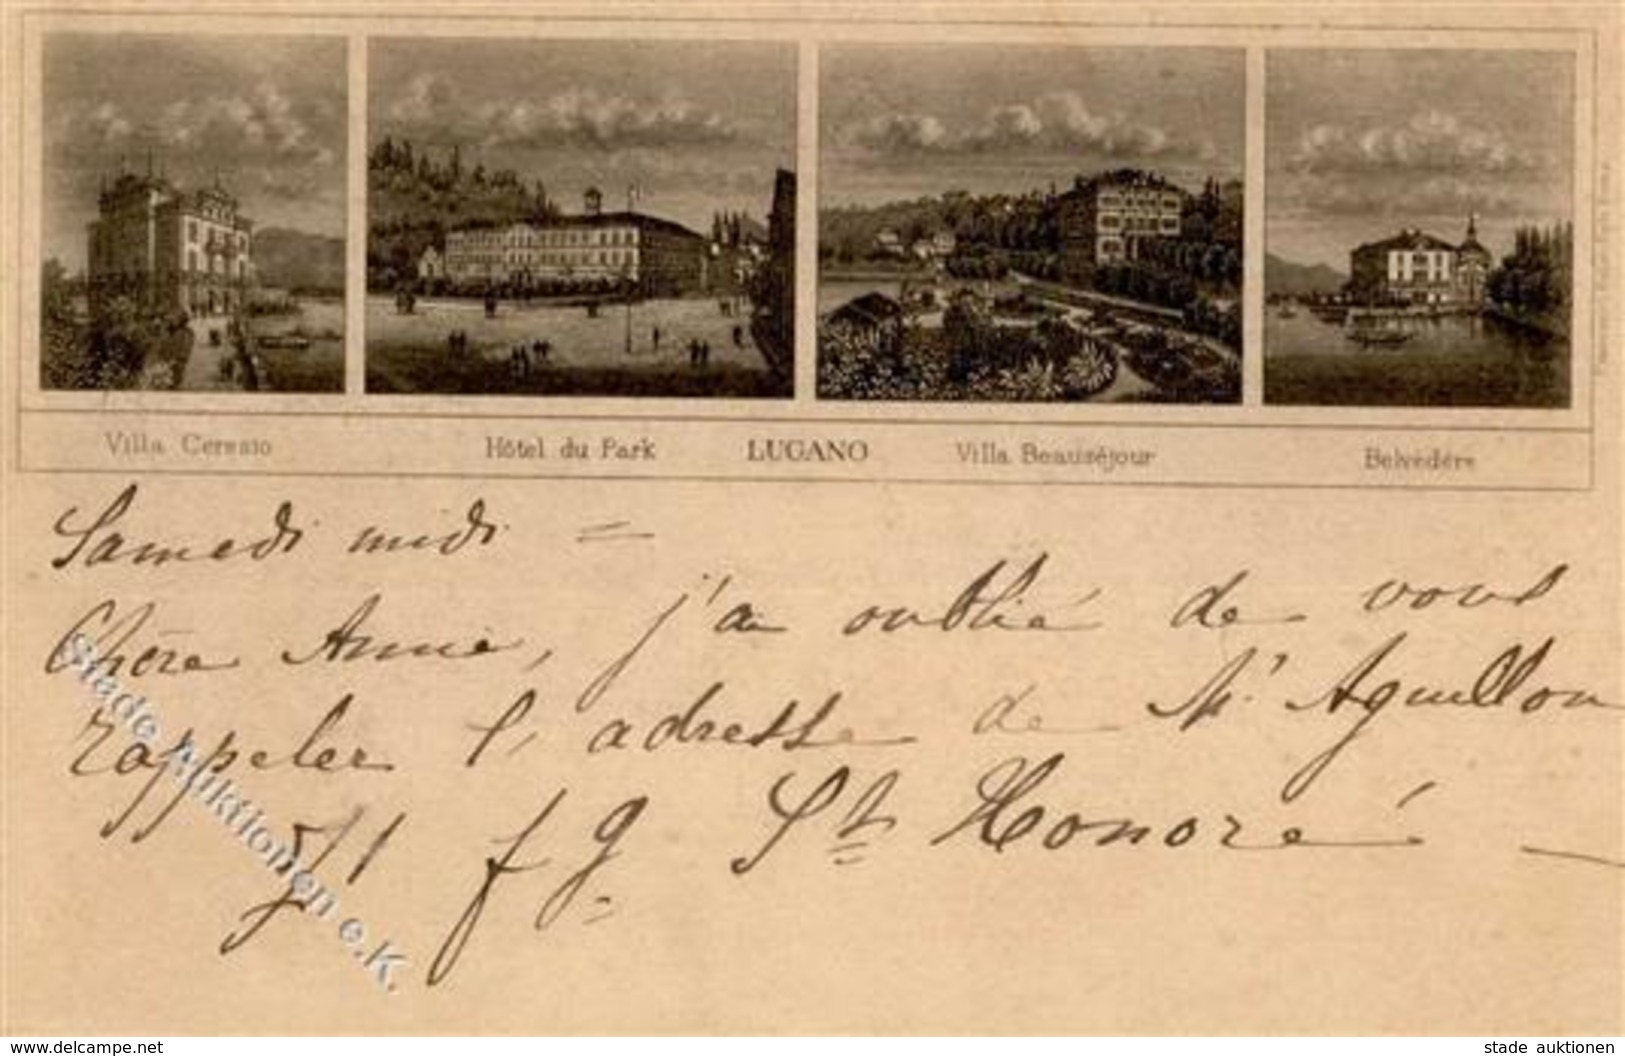 Villa Ceresio Hôtel du Park LUGANO Villa Beauséjour Belvédère
Samedi midi =
Chère Annie, j'ai oublié de vous
rappeler l'adresse de Mr Aguillon
71 fg St Honoré
Stade Auktionen e.K.
www.delcampe.net
stade auktionen